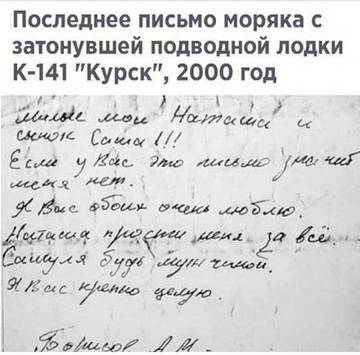 Последнее письмо моряка с
затонувшей подводной лодки
К-141 "Курск", 2000 год
Милые мои Наташа и
сынок Саша!!!
Если у Вас это письмо значит
меня нет.
Я Вас обоих очень люблю.
Наташа прости меня за всё.
Сашуля будь мужчиной.
Я Вас крепко целую.
Борисов А.М.